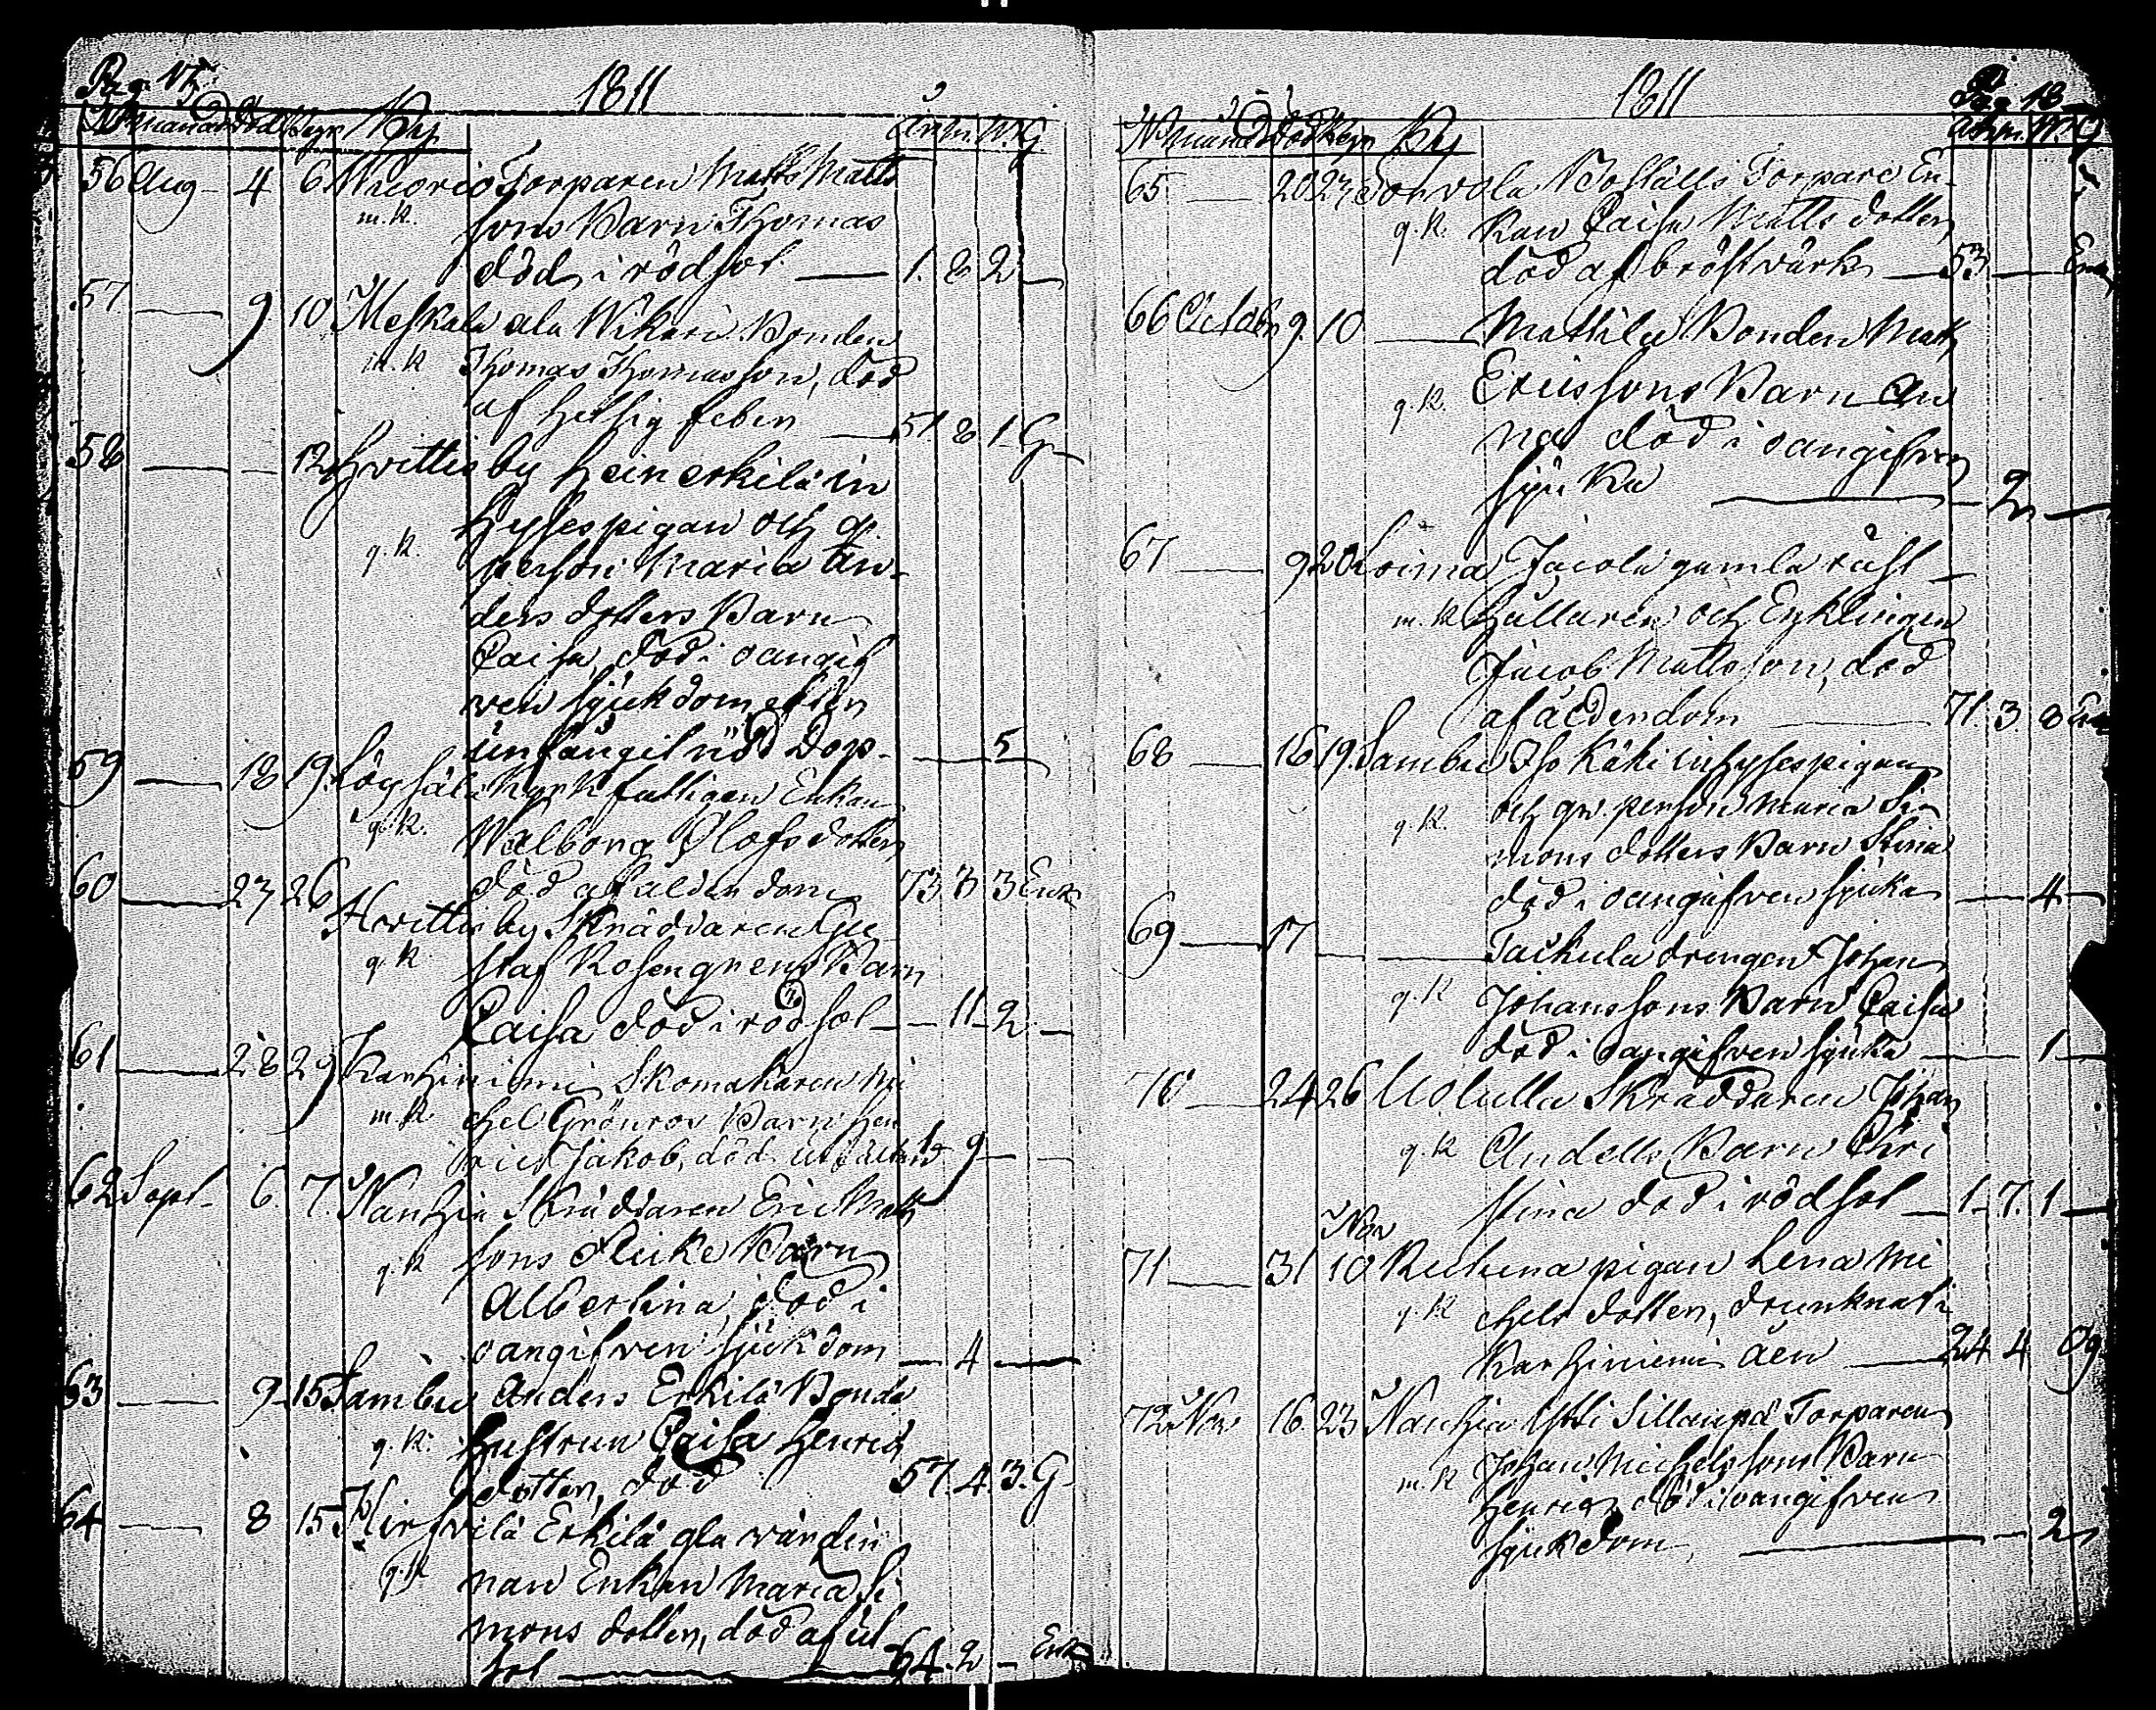 Pag. 17.
1811
N Månad död Begr By
År m. W. G
56 Aug 4 6 Wuorio Torparen Matts Matts
m.k. sons Barn Thomas
död i rödsot 1. 8 2
57 9 10 Meskala ala Wikari Bonden
m.k. Thomas Thomasson, död
af hetsig feber 51 8 1 G
58 12 Hvittisby Heinerkilä in
hyses pigan och qv.
g.k. person Maria An-
ders dotters Barn
Caisa, död i oangif
ven sjukdom efter
undfångit nöd Dop. 5
59 18 19. Löysälä Kyrkfattigen Enkan
g.k. Walborg Olofsdotter
60 23 26 död af ålderdom 73 3 3 Enk
Hvittisby Skräddaren Gu
g.k. staf Rosengrens Barn
Caisa död i rödsot 11 2
61 28 29 Karhiniemi Skomakaren Mi
m.k. chel Grönros Barn Hen
rick Jakob, död 1 9
62 Sept. 6. 7. Nanhia Skräddaren Eric Matts
g.k. sons Barn
Albertina, död i
oangifven sjukdom 4
63 9 15 Sambu Anders Erkilä Bonde
g.k. hustrun Caisa Henrics
dotter, död 57. 4. 3. G
64 8 15 Kirsvilä Erkilä gla värdin
g.k. nan Enkan Maria Si
mons dotter, död af ut
sot 64. 2 Enk
1811
Pag 18
N Månad död Begr By
År m. W. G
65 20 23 Torvola Boställs Torpare En-
g.k. kan Caisa Matts dotter,
död af bröstvärk 53 Enk
66 October 9. 10 Mattila Bonden Matts
g.k. Ericssons Barn An
na död i oangifven
sjuka 2
67 9 20 Loima Jacola gamla rust
m.k. hållaren och Enklingen
Jacob Mattsson, död
af ålderdom 71. 3 8 Enk
68 16 19. Sambu Iso Käki inhyses pigan
g.k. och qv. person Maria Si
mons dotters Barn Stina
död i oangifven sjuka 4
69 17 Taukula drengen Johan
g.k. Johanssons Barn Caisa
död i oangifven sjuka 1
70 24 26 Skräddaren Johan
g.k. Andells Barn Chri
stina död i rödsot 1 7. 1
Nov
71 31 10 pigan Lena Mi
g.k. chels dotter, drunknat i
Karhiniemi åen 24 4 Og
72 Nov 16. 23 Nanhia Yli Sillanpä Torparen
m.k. Johan Michelssons Barn
Henric, död i oangifven
sjukdom, 2